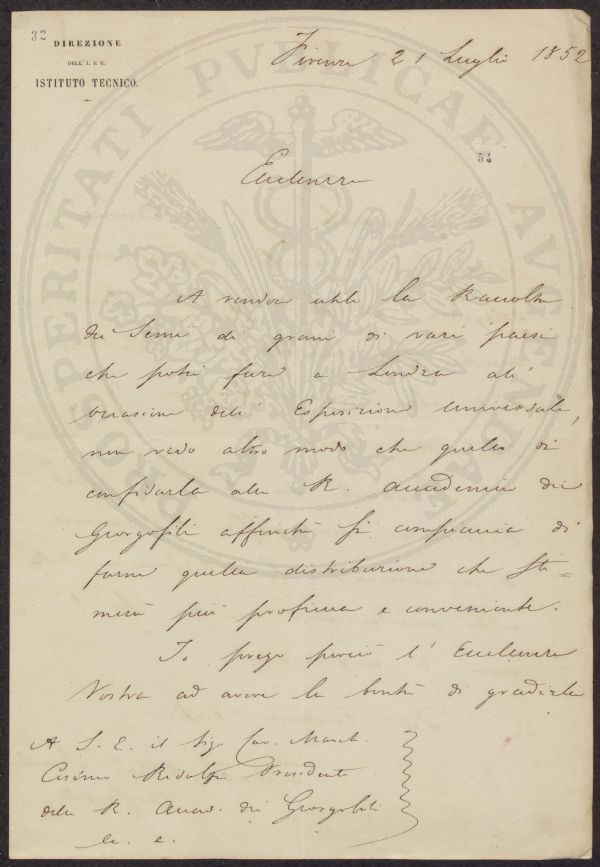 32
DIREZIONE
DELL' I. E R.
ISTITUTO TECNICO.
Firenze 21 Luglio 1852
34
Eccellenza
A render utile la Raccolta
dei Semi di grani di vari paesi
che potei fare a Londra all'
occasione dell' Esposizione Universale,
non vedo altro modo che quello di
confidarla alla R. Accademia dei
Georgofili affinchè si compiaccia di
farne quella distribuzione che sti=
merà più proficua e conveniente.
Io prego perciò l' Eccellenza
Vostra ad avere la bontà di gradirla
A S. E. il Sig. Cav. March.
Cosimo Ridolfi Presidente
della R. Accad. dei Georgofili
PROSPERITATI PVBLICAE AVGENDAE